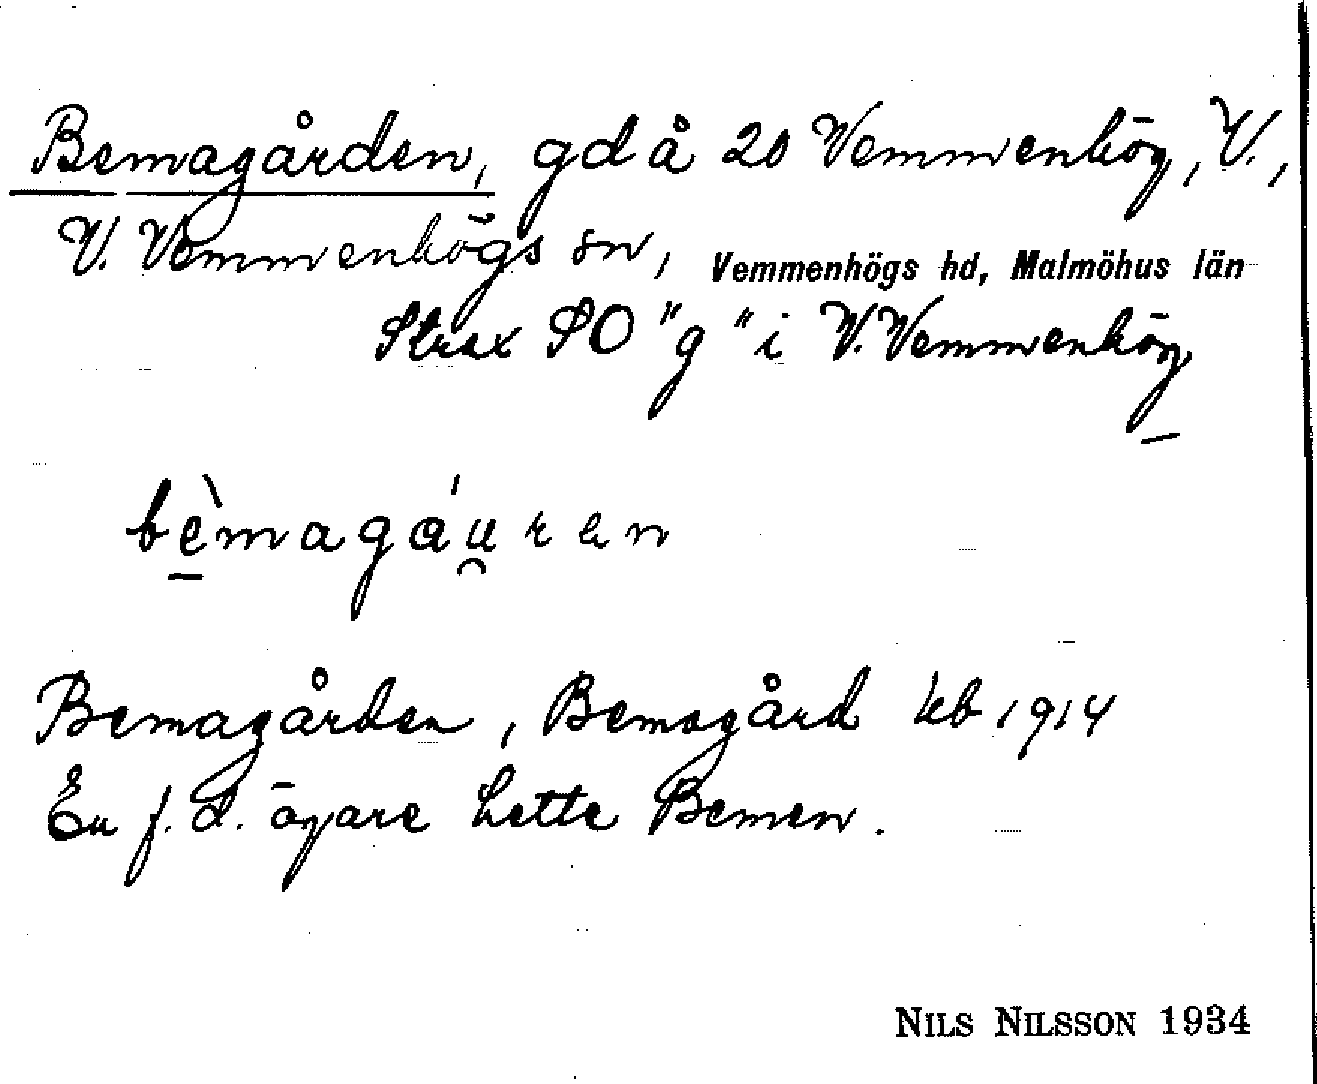 Bemagården, gd å 20 Vemmenhög, V.,
V. Vemmenhögs sn, Vemmenhögs hd, Malmöhus län
Strax SO "g" i V. Vemmenhög
bèmagáu̯ren
Bemagården, Bemagård kb 1914
En f. d. ägare hette Bemen.
NILS NILSSON 1934